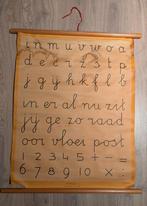 i n m u v w o a
d e c r l s t p
j g y h k f b
in er al nu zit
jij ge zo raad
oor vloer post
1 2 3 4 5 + - =
6 7 8 9 10 × :